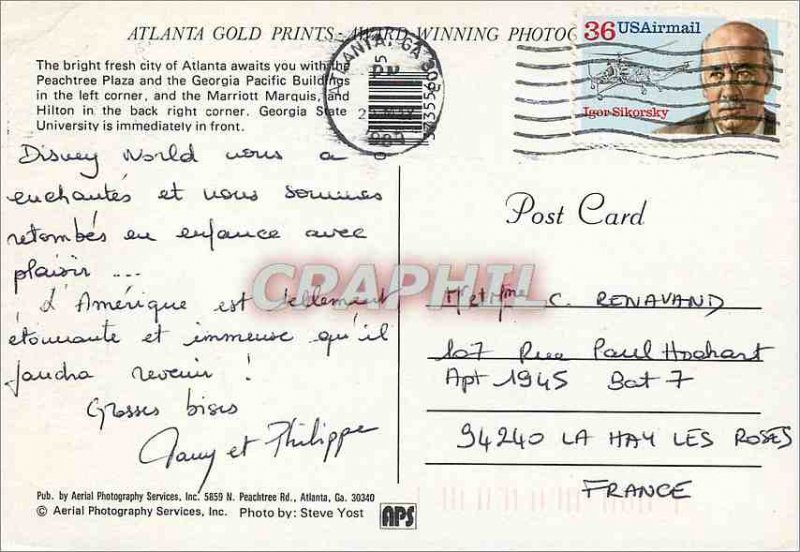 ATLANTA GOLD PRINTS - AWARD WINNING PHOTOG
The bright fresh city of Atlanta awaits you with the
Peachtree Plaza and the Georgia Pacific Buildings
in the left corner, and the Marriott Marquis, and
Hilton in the back right corner. Georgia State
University is immediately in front.
ATLANTA, GA 303
PM
1989
36 USAirmail
Igor Sikorsky
Disney World nous a
enchantés et nous sommes
retombés en enfance avec
plaisir ...
L'Amérique est tellement
étonnante et immense qu'il
faudra revenir !
Grosses bises
et Philippe
Post Card
Mr et Mme C. RENAVAND
107 Rue Paul Hochart
Apt 1945 Bat 7
94240 LA HAY LES ROSES
FRANCE
CRAPHIL
Pub. by Aerial Photography Services, Inc. 5859 N. Peachtree Rd., Atlanta, Ga. 30340
© Aerial Photography Services, Inc. Photo by: Steve Yost
APS